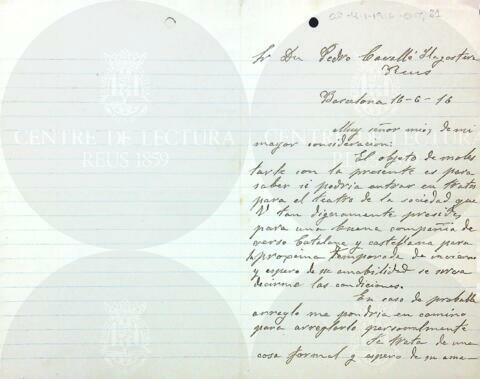 Sr Dn Pedro Cavallé Llagostera
Reus
Barcelona 16-6-16
Muy señor mio, de mi
mayor consideracion:
El objeto de moles
tarle con la presente es para
saber si podria entrar en tratos
para el teatro de la sociedad que
V tan dignamente preside,
para una buena compañia de
verso Catalana y castellana para
la proxima temporada de invierno
y espero de su amabilidad se sirva
decirme las condiciones.
En caso de probable
arreglo me pondria en camino
para arreglarlo personalmente
Se trata de una
cosa formal y espero de su ama-
CENTRE DE LECTURA
REUS 1859
CENTRE DE LECTURA
REUS 1859